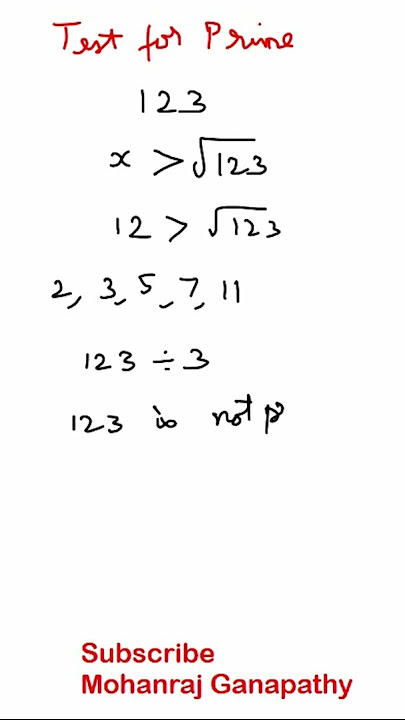 Test for Prime
123
x > √123
12 > √123
2, 3, 5, 7, 11
123 ÷ 3
123 is not p
Subscribe
Mohanraj Ganapathy